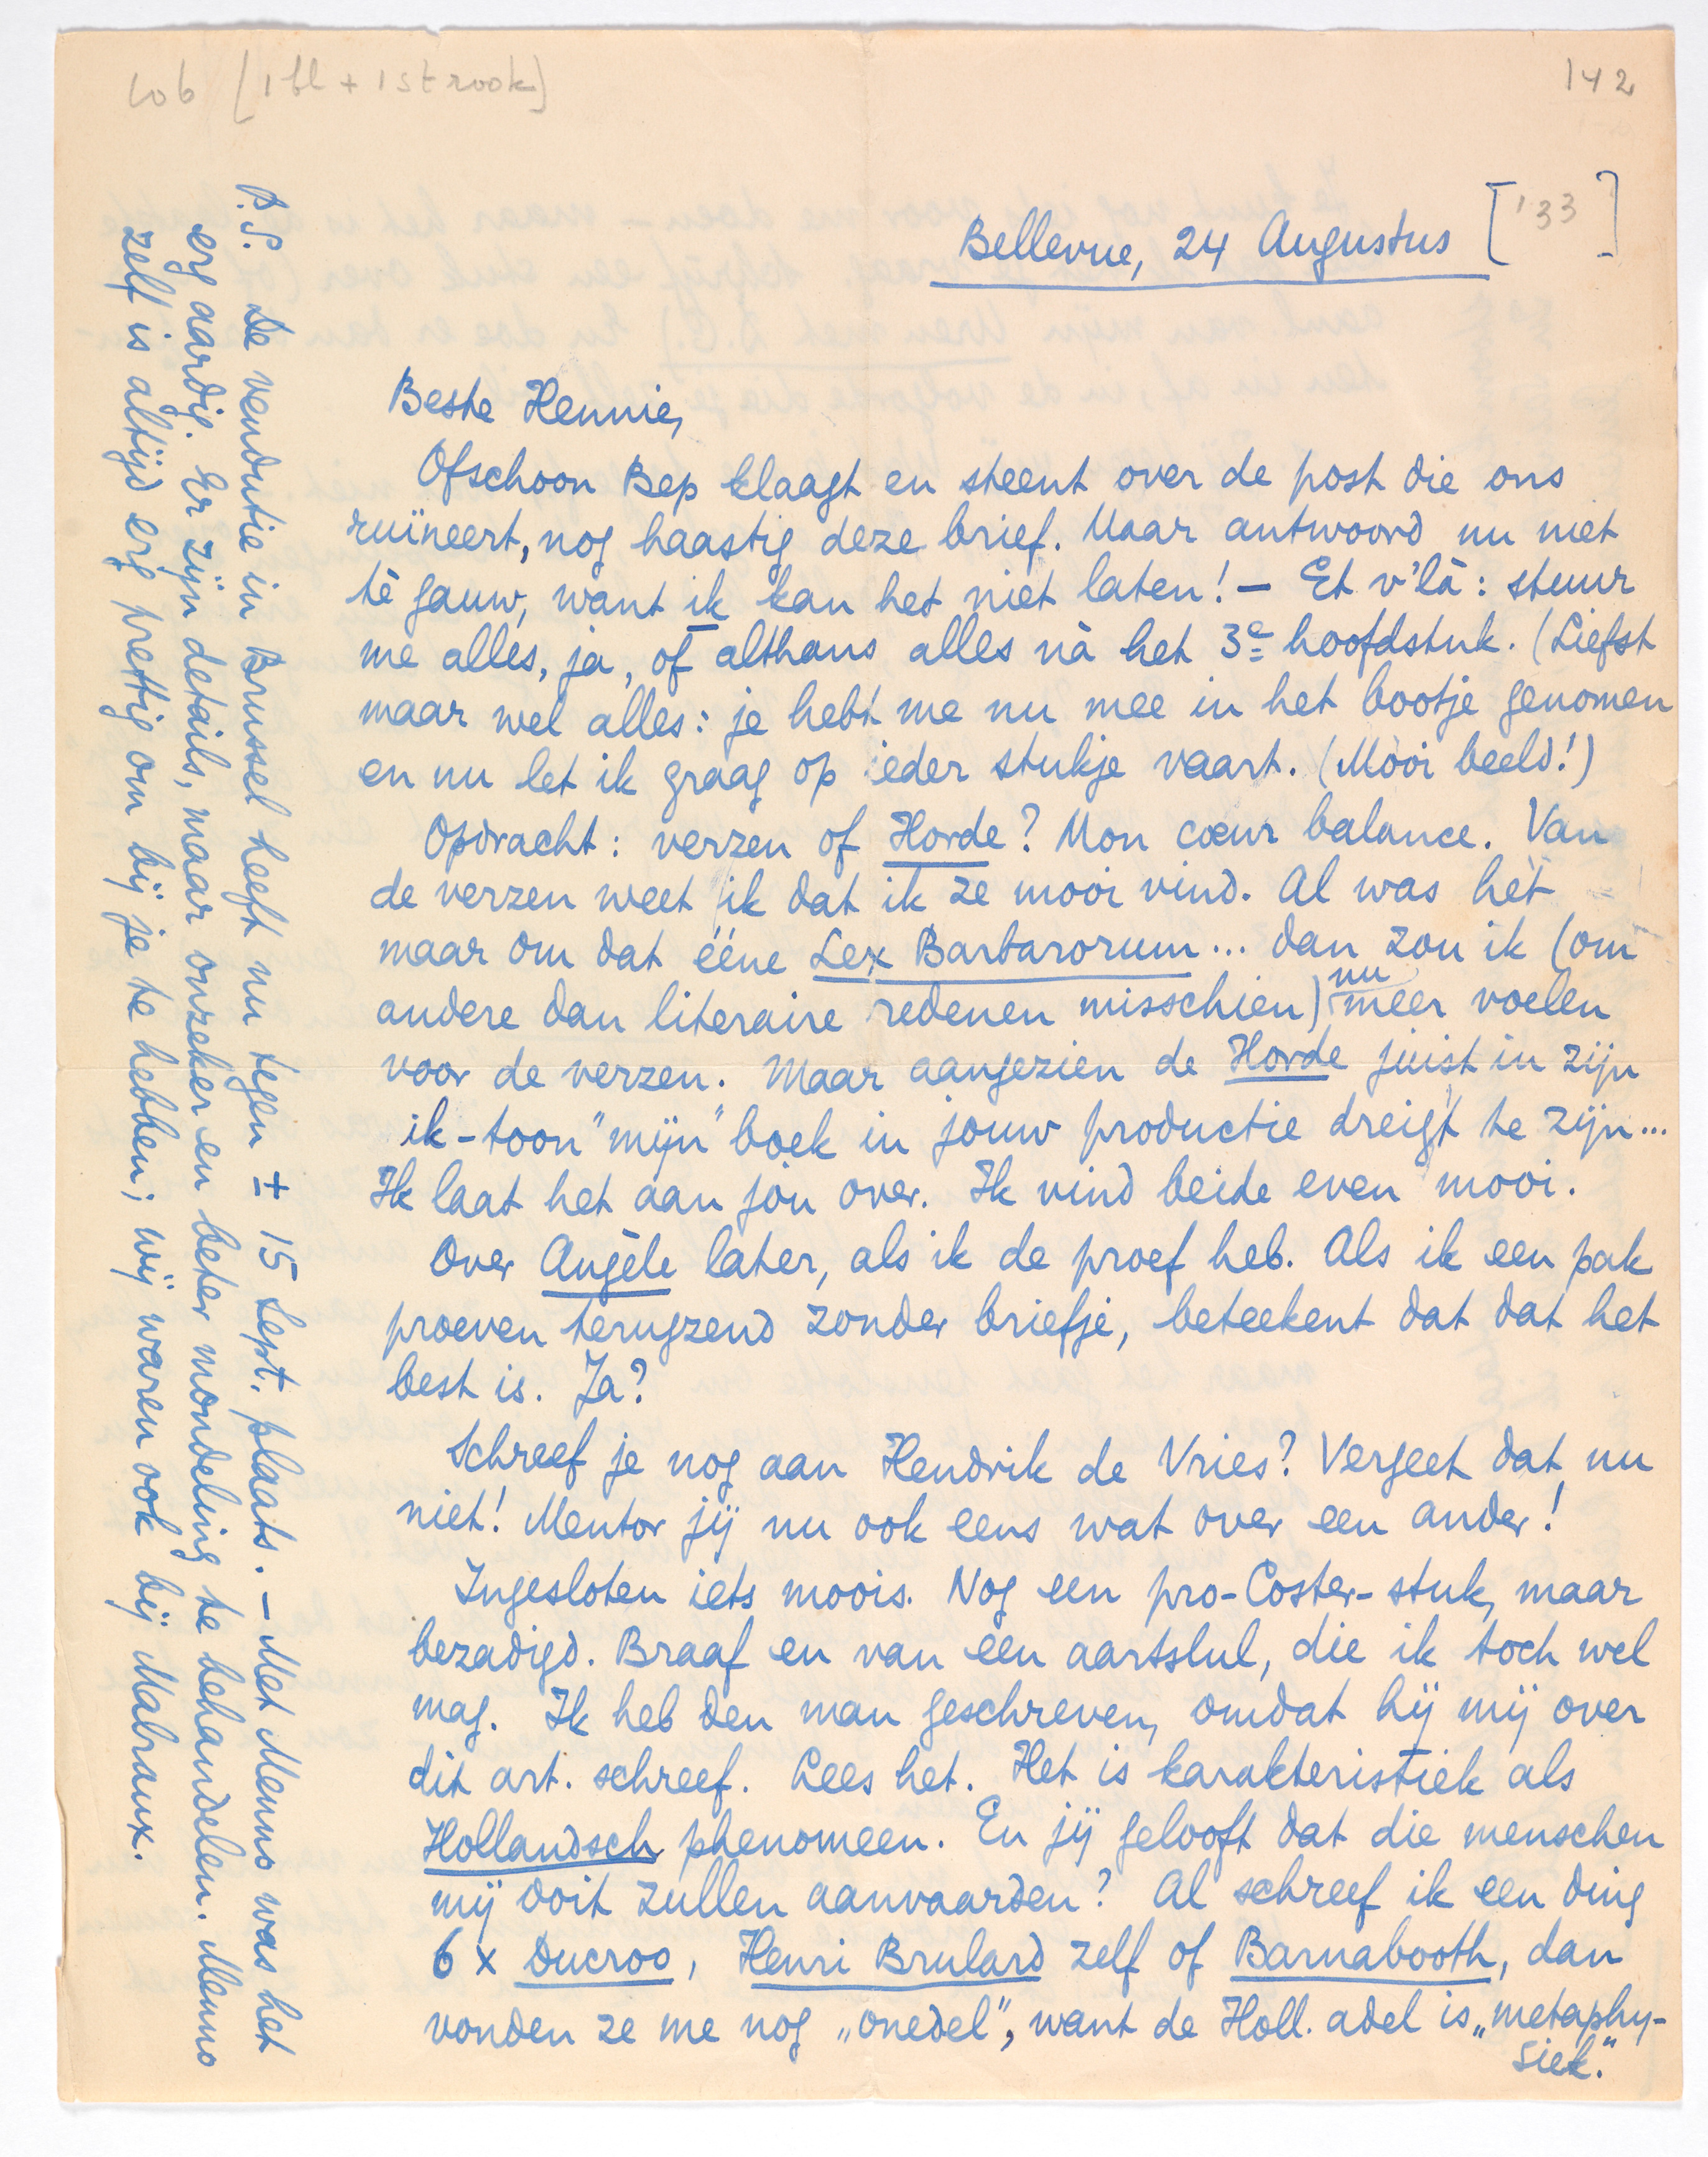 106 [1 bl + 1 strook]
142
Bellevue, 24 Augustus ['33]
Beste Hennie,
Ofschoon Bep klaagt en steent over de post die ons
ruïneert, nog haastig deze brief. Maar antwoord nu niet
té gauw, want ik kan het niet laten! — Et v'là: stuur
me alles, ja, of althans alles nà het 3e hoofdstuk. (Liefst
maar wel alles: je hebt me nu mee in het bootje genomen
en nu let ik graag op ieder stukje vaart. (Mooi beeld!)
Opdracht: verzen of Horde? Mon cœur balance. Van
de verzen weet ik dat ik ze mooi vind. Al was het
maar om dat ééne Lex Barbarorum... dan zou ik (om
andere dan literaire redenen misschien) nu meer voelen
voor de verzen. Maar aangezien de Horde juist in zijn
ik-toon "mijn" boek in jouw productie dreigt te zijn...
Ik laat het aan jou over. Ik vind beide even mooi.
Over Angèle later, als ik de proef heb. Als ik een pak
proeven terugzend zonder briefje, beteekent dat dat het
best is. Ja?
Schreef je nog aan Hendrik de Vries? Vergeet dat nu
niet! Mentor jij nu ook eens wat over een ander!
Ingesloten iets moois. Nog een pro-Coster-stuk, maar
bezadigd. Braaf en van een aartslul, die ik toch wel
mag. Ik heb den man geschreven, omdat hij mij over
dit art. schreef. Lees het. Het is karakteristiek als
Hollandsch phenomeen. En jij gelooft dat die menschen
mij ooit zullen aanvaarden? Al schreef ik een ding
6 x Ducroo, Henri Brulard zelf of Barnabooth, dan
vonden ze me nog „onedel", want de Holl. adel is „metaphy-
siek."
P.S. De vendutie in Brussel heeft nu tegen ± 15 Sept. plaats. — Met Menno was het
erg aardig. Er zijn details, maar onzeker en beter mondeling te behandelen. Menno
zelf is altijd erg prettig om bij je te hebben; wij waren ook bij Malraux.